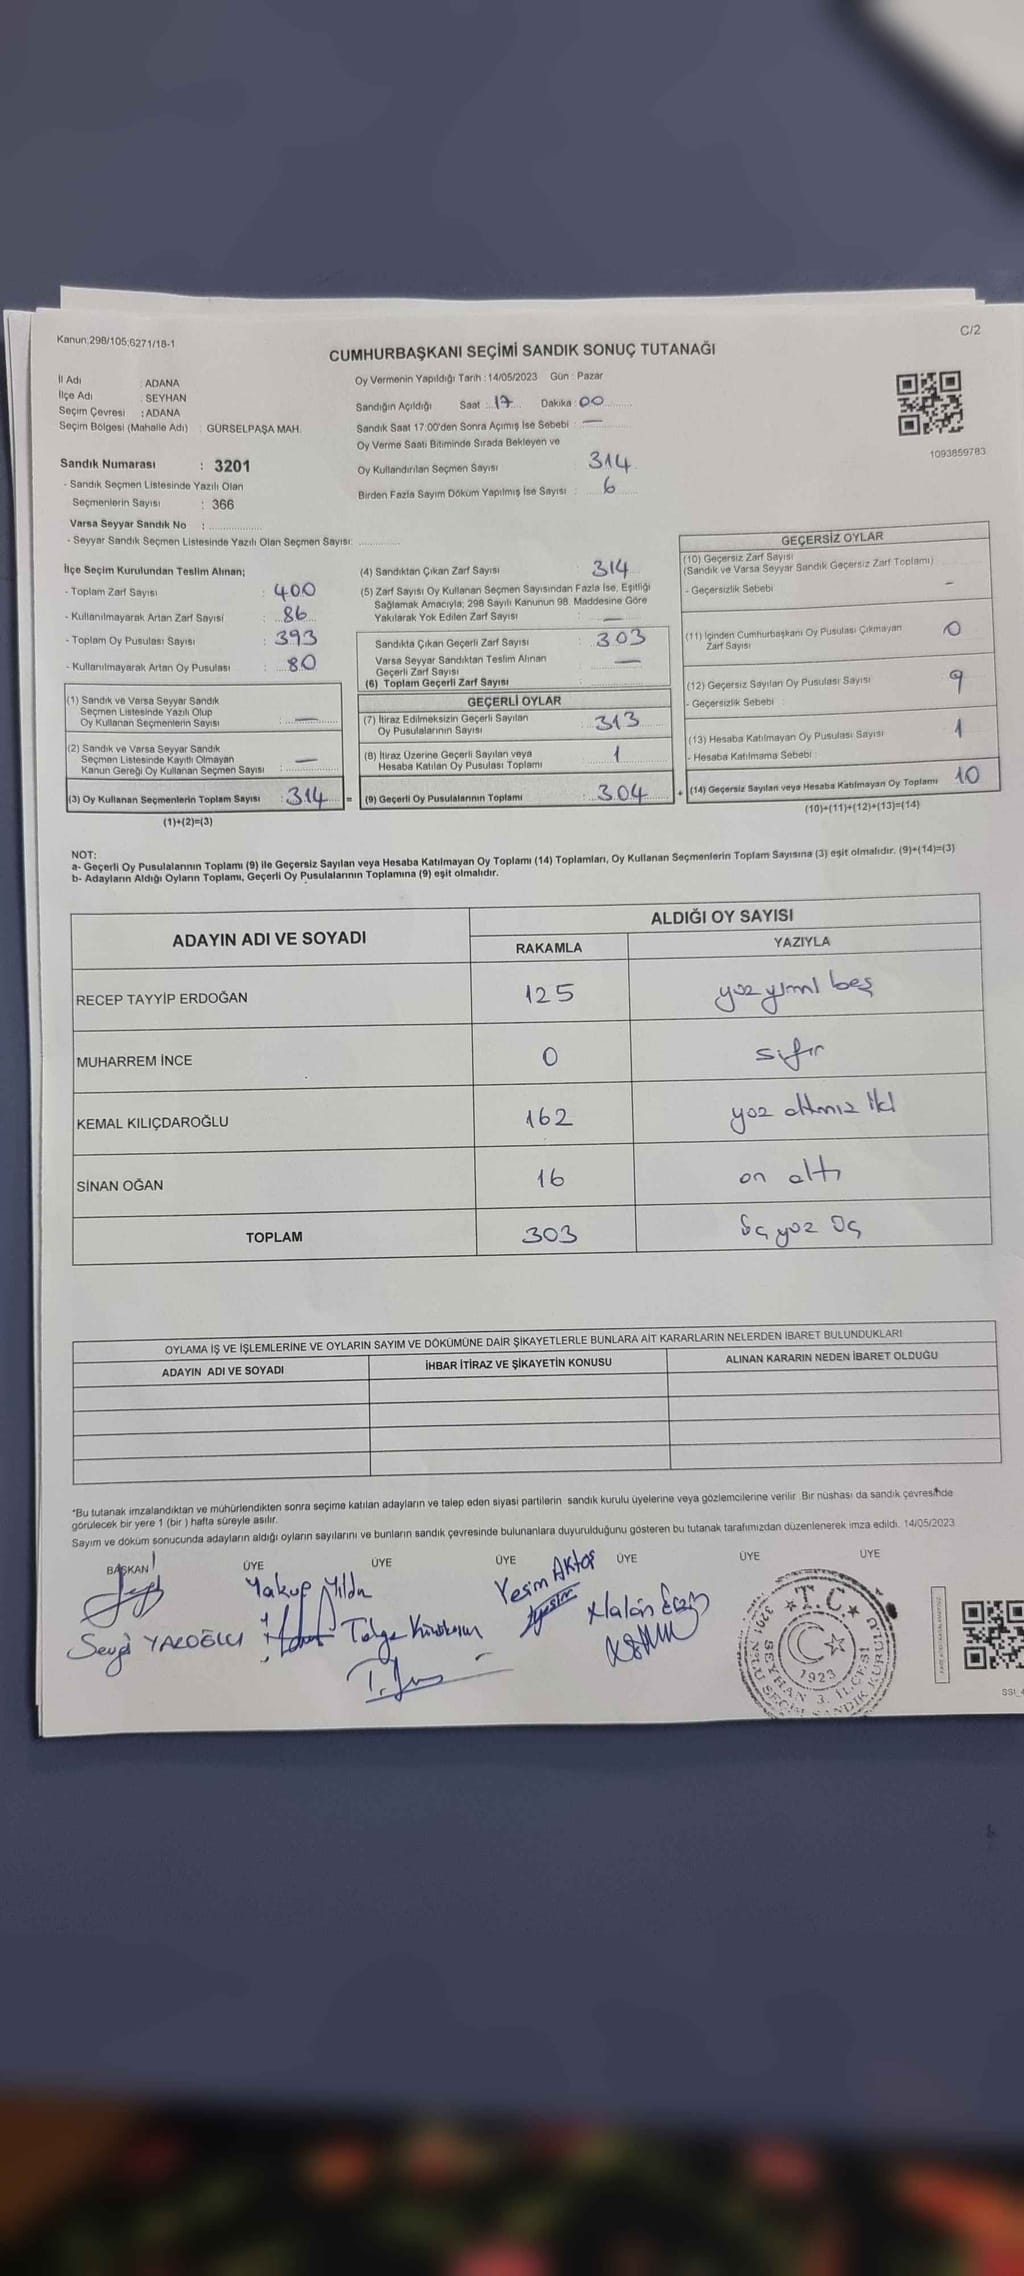 Kanun:298/105;6271/18-1
C/2
CUMHURBAŞKANI SEÇİMİ SANDIK SONUÇ TUTANAĞI
İl Adı : ADANA
İlçe Adı : SEYHAN
Seçim Çevresi : ADANA
Seçim Bölgesi (Mahalle Adı) : GÜRSELPAŞA MAH.
Sandık Numarası : 3201
- Sandık Seçmen Listesinde Yazılı Olan
Seçmenlerin Sayısı : 366
Varsa Seyyar Sandık No :
- Seyyar Sandık Seçmen Listesinde Yazılı Olan Seçmen Sayısı:
Oy Vermenin Yapıldığı Tarih : 14/05/2023 Gün : Pazar
Sandığın Açıldığı Saat : 17 Dakika : 00
Sandık Saat 17.00'den Sonra Açımış İse Sebebi : —
Oy Verme Saati Bitiminde Sırada Bekleyen ve
Oy Kullandırılan Seçmen Sayısı : 314
Birden Fazla Sayım Döküm Yapılmış İse Sayısı : 6
1093859783
İlçe Seçim Kurulundan Teslim Alınan;
- Toplam Zarf Sayısı : 400
- Kullanılmayarak Artan Zarf Sayısı : 86
- Toplam Oy Pusulası Sayısı : 393
- Kullanılmayarak Artan Oy Pusulası : 80
(1) Sandık ve Varsa Seyyar Sandık
Seçmen Listesinde Yazılı Olup
Oy Kullanan Seçmenlerin Sayısı : —
(2) Sandık ve Varsa Seyyar Sandık
Seçmen Listesinde Kayıtlı Olmayan
Kanun Gereği Oy Kullanan Seçmen Sayısı : —
(3) Oy Kullanan Seçmenlerin Toplam Sayısı : 314 =
(1)+(2)=(3)
(4) Sandıktan Çıkan Zarf Sayısı : 314
(5) Zarf Sayısı Oy Kullanan Seçmen Sayısından Fazla İse, Eşitliği
Sağlamak Amacıyla; 298 Sayılı Kanunun 98. Maddesine Göre
Yakılarak Yok Edilen Zarf Sayısı : —
Sandıkta Çıkan Geçerli Zarf Sayısı : 303
Varsa Seyyar Sandıktan Teslim Alınan
Geçerli Zarf Sayısı : —
(6) Toplam Geçerli Zarf Sayısı :
GEÇERLİ OYLAR
(7) İtiraz Edilmeksizin Geçerli Sayılan
Oy Pusulalarının Sayısı : 313
(8) İtiraz Üzerine Geçerli Sayılan veya
Hesaba Katılan Oy Pusulası Toplamı : 1
(9) Geçerli Oy Pusulalarının Toplamı : 304 +
GEÇERSİZ OYLAR
(10) Geçersiz Zarf Sayısı
(Sandık ve Varsa Seyyar Sandık Geçersiz Zarf Toplamı)
- Geçersizlik Sebebi –
(11) İçinden Cumhurbaşkanı Oy Pusulası Çıkmayan
Zarf Sayısı 0
(12) Geçersiz Sayılan Oy Pusulası Sayısı 9
- Geçersizlik Sebebi :
(13) Hesaba Katılmayan Oy Pusulası Sayısı 1
- Hesaba Katılmama Sebebi :
(14) Geçersiz Sayılan veya Hesaba Katılmayan Oy Toplamı 10
(10)+(11)+(12)+(13)=(14)
NOT:
a- Geçerli Oy Pusulalarının Toplamı (9) ile Geçersiz Sayılan veya Hesaba Katılmayan Oy Toplamı (14) Toplamları, Oy Kullanan Seçmenlerin Toplam Sayısına (3) eşit olmalıdır. (9)+(14)=(3)
b- Adayların Aldığı Oyların Toplamı, Geçerli Oy Pusulalarının Toplamına (9) eşit olmalıdır.
ADAYIN ADI VE SOYADI ALDIĞI OY SAYISI
RAKAMLA YAZIYLA
RECEP TAYYİP ERDOĞAN 125 yüz yirmi beş
MUHARREM İNCE 0 sıfır
KEMAL KILIÇDAROĞLU 162 yüz altmış iki
SİNAN OĞAN 16 on altı
TOPLAM 303 üç yüz üç
OYLAMA İŞ VE İŞLEMLERİNE VE OYLARIN SAYIM VE DÖKÜMÜNE DAİR ŞİKAYETLERLE BUNLARA AİT KARARLARIN NELERDEN İBARET BULUNDUKLARI
ADAYIN ADI VE SOYADI İHBAR İTİRAZ VE ŞİKAYETİN KONUSU ALINAN KARARIN NEDEN İBARET OLDUĞU
*Bu tutanak imzalandıktan ve mühürlendikten sonra seçime katılan adayların ve talep eden siyasi partilerin sandık kurulu üyelerine veya gözlemcilerine verilir. Bir nüshası da sandık çevresinde
görülecek bir yere 1 (bir ) hafta süreyle asılır.
Sayım ve döküm sonucunda adayların aldığı oyların sayılarını ve bunların sandık çevresinde bulunanlara duyurulduğunu gösteren bu tutanak tarafımızdan düzenlenerek imza edildi. 14/05/2023
BAŞKAN ÜYE ÜYE ÜYE ÜYE ÜYE ÜYE
Yakup Yıldız Yeşim AKtaş
Sevgi Tolga
T.C.
1923
3201 NOLU SEÇİM SANDIK KURULU
SEYHAN 3. İLÇESİ